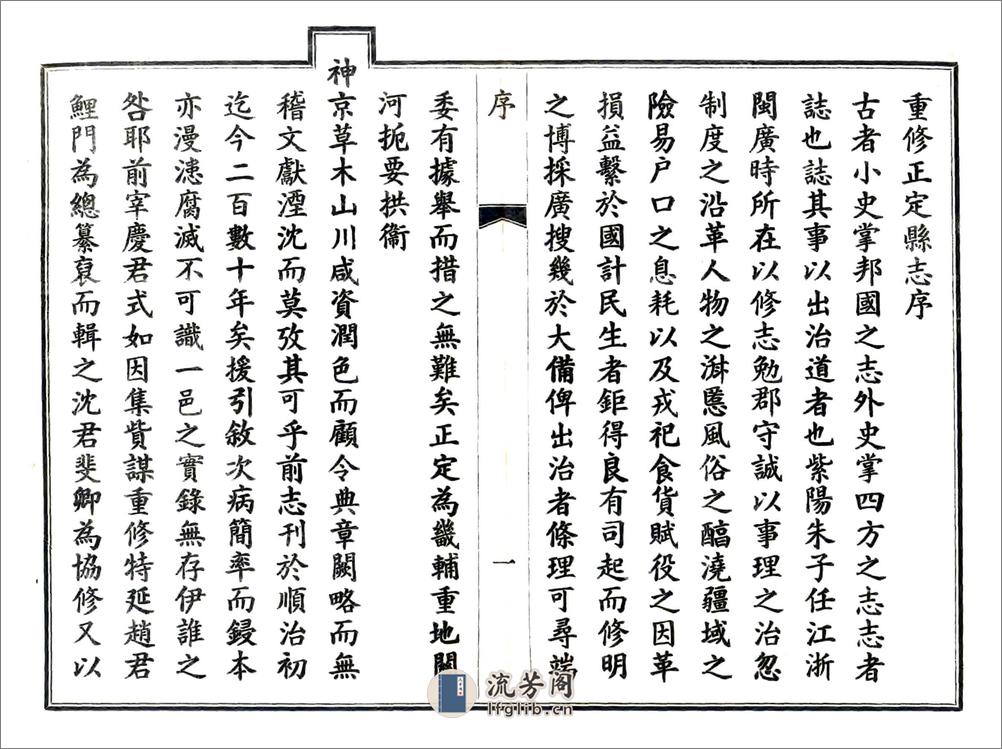 重修正定縣志序
古者小史掌邦國之志外史掌四方之志志者
誌也誌其事以出治道者也紫陽朱子任江浙
閩廣時所在以修志勉郡守誠以事理之治忽
制度之沿革人物之淑慝風俗之醕澆疆域之
險易戶口之息耗以及戎祀食貨賦役之因革
損益繫於國計民生者鉅得良有司起而修明
之博採廣搜幾於大備俾出治者條理可尋端
序
一
委有據舉而措之無難矣正定為畿輔重地關
河扼要拱衞
神京草木山川咸資潤色而顧令典章闕略而無
稽文獻湮沈而莫攷其可乎前志刊於順治初
迄今二百數十年矣援引敘次病簡率而鋟本
亦漫漶腐滅不可識一邑之實錄無存伊誰之
咎耶前宰慶君式如因集貲謀重修特延趙君
鯉門為總纂裒而輯之沈君斐卿為協修又以
流芳阁
lfglib.cn